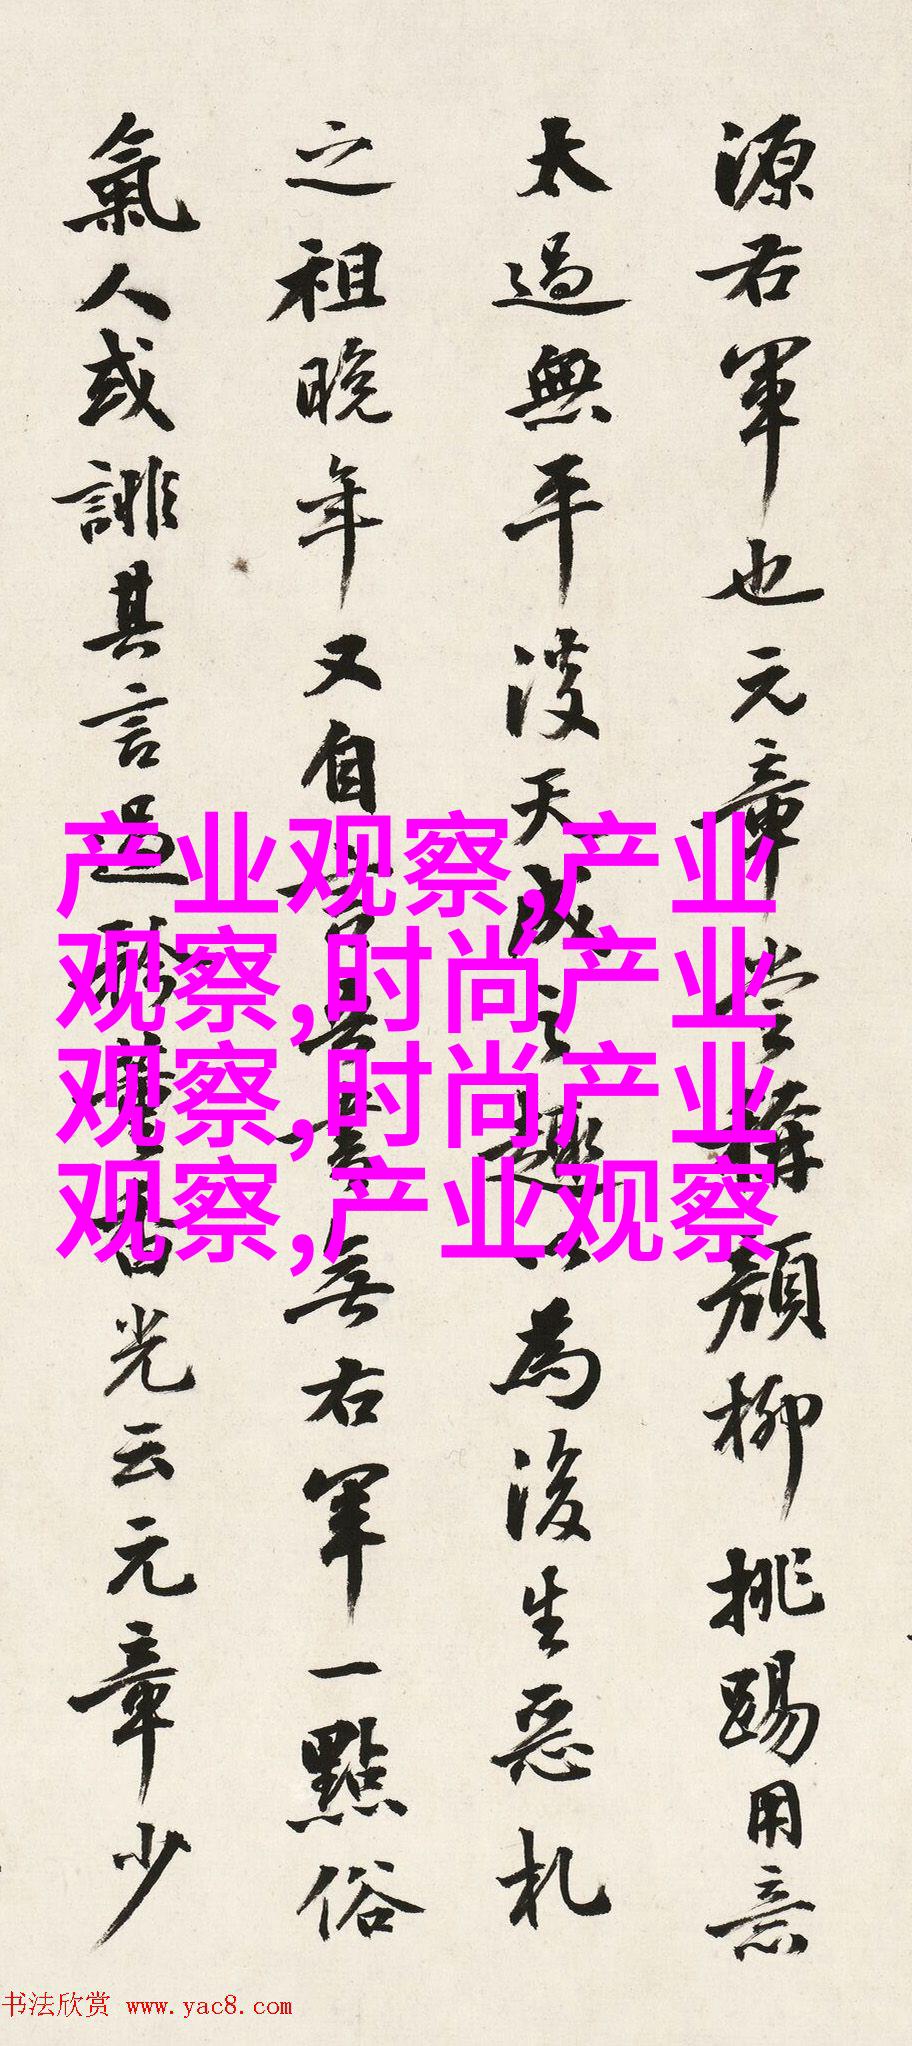 源右軍也元章嘗稱顏柳挑踢用意
太過無平淡天成之趣以為後生惡札
之祖晚年又自言書無右軍一點俗
氣人或誹其言過矜董香光云元章少
产业观察,产业
观察,时尚产业
观察,时尚产业
观察,产业观察
书法欣赏 www.yac8.com